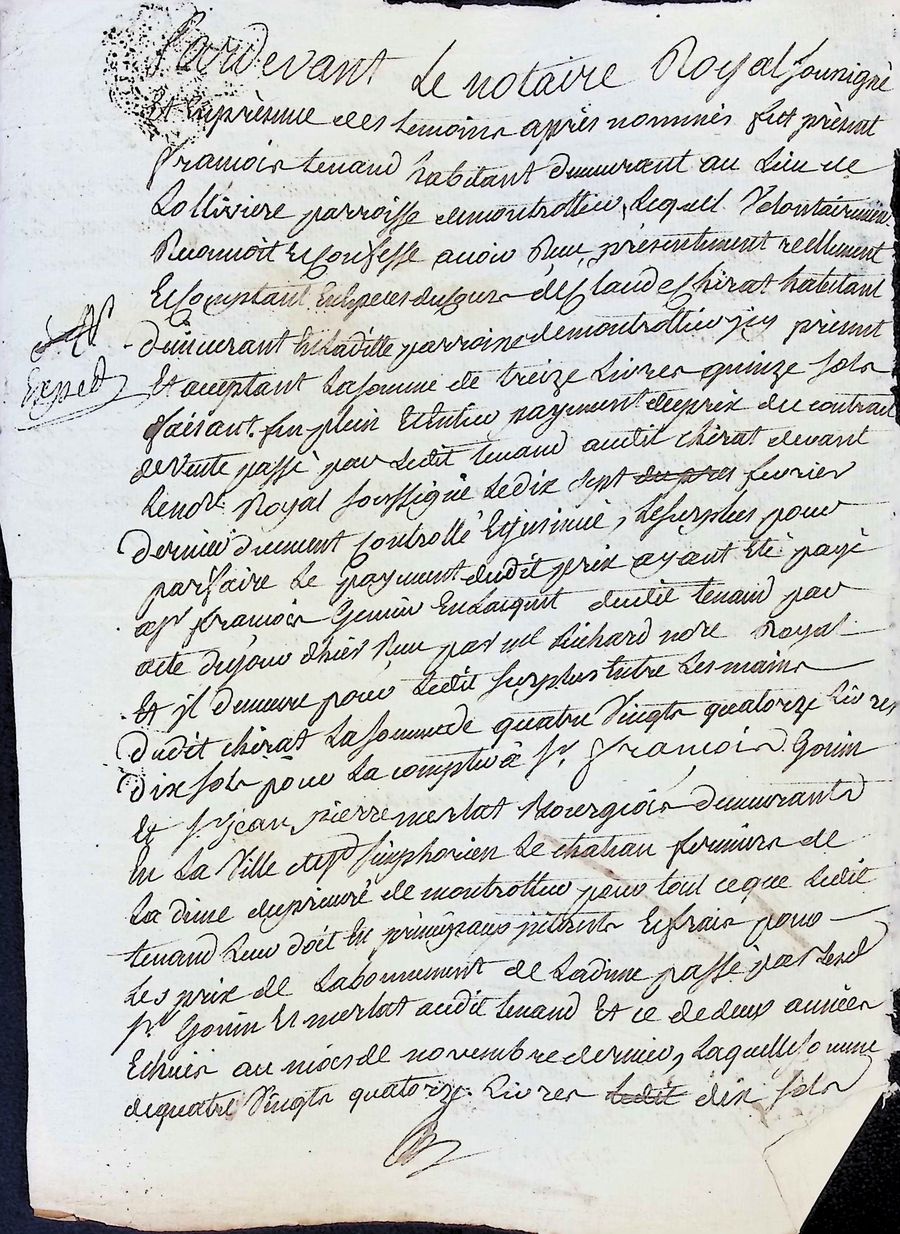 Pardevant Le notaire Royal sousigné
Et En présence des temoins après nommés fut présent
françois tenand habitant demeurant au Lieu de
Lollivière parroisse de montrottier, Lequel Volontairement
Reconnoit et Confesse avoir Reçu présentement réellement
Et Comptant En Especes du Cours de Claude Chirat habitant
demeurant En Laditte parroisse de montrottier jcy présent
Et acceptant La somme de treize Livres quinze sols
faisant fin plein Et Entier payment du prix du contrat
de Vente passé par Ledit tenand audit chirat devant
Le nore. Royal soussigné Le dix sept du pres fevrier
dernier duement Controllé Et jnsinué, Le surplus pour
parfaire Le payment dudit prix ayant Eté payé
a sr. françois Gonin En Lacquit dudit tenand par
acte du jour d'hier Reçu par me Richard nore Royal
Et il demeure pour Ledit surplus Entre Les mains
dudit chirat La somme de quatre Vingts quatorze Livres
dix sols pour La compter à sr. françois Gonin
Et sr. jean pierre merlat Bourgeois demeurants
En La Ville de st. simphorien Le chateau fermiers de
La dime du prieuré de montrottier pour tout ce que Ledit
tenand Leur doit En principaux jnterets Et frais pour
Les prix de Labonnement de La dime passé par Lesd
srs. Gonin Et merlat audit tenand Et ce de deux années
Echues au mois de novembre dernier, Laquelle somme
de quatre Vingts quatorze Livres Ledit dix sols
Exped